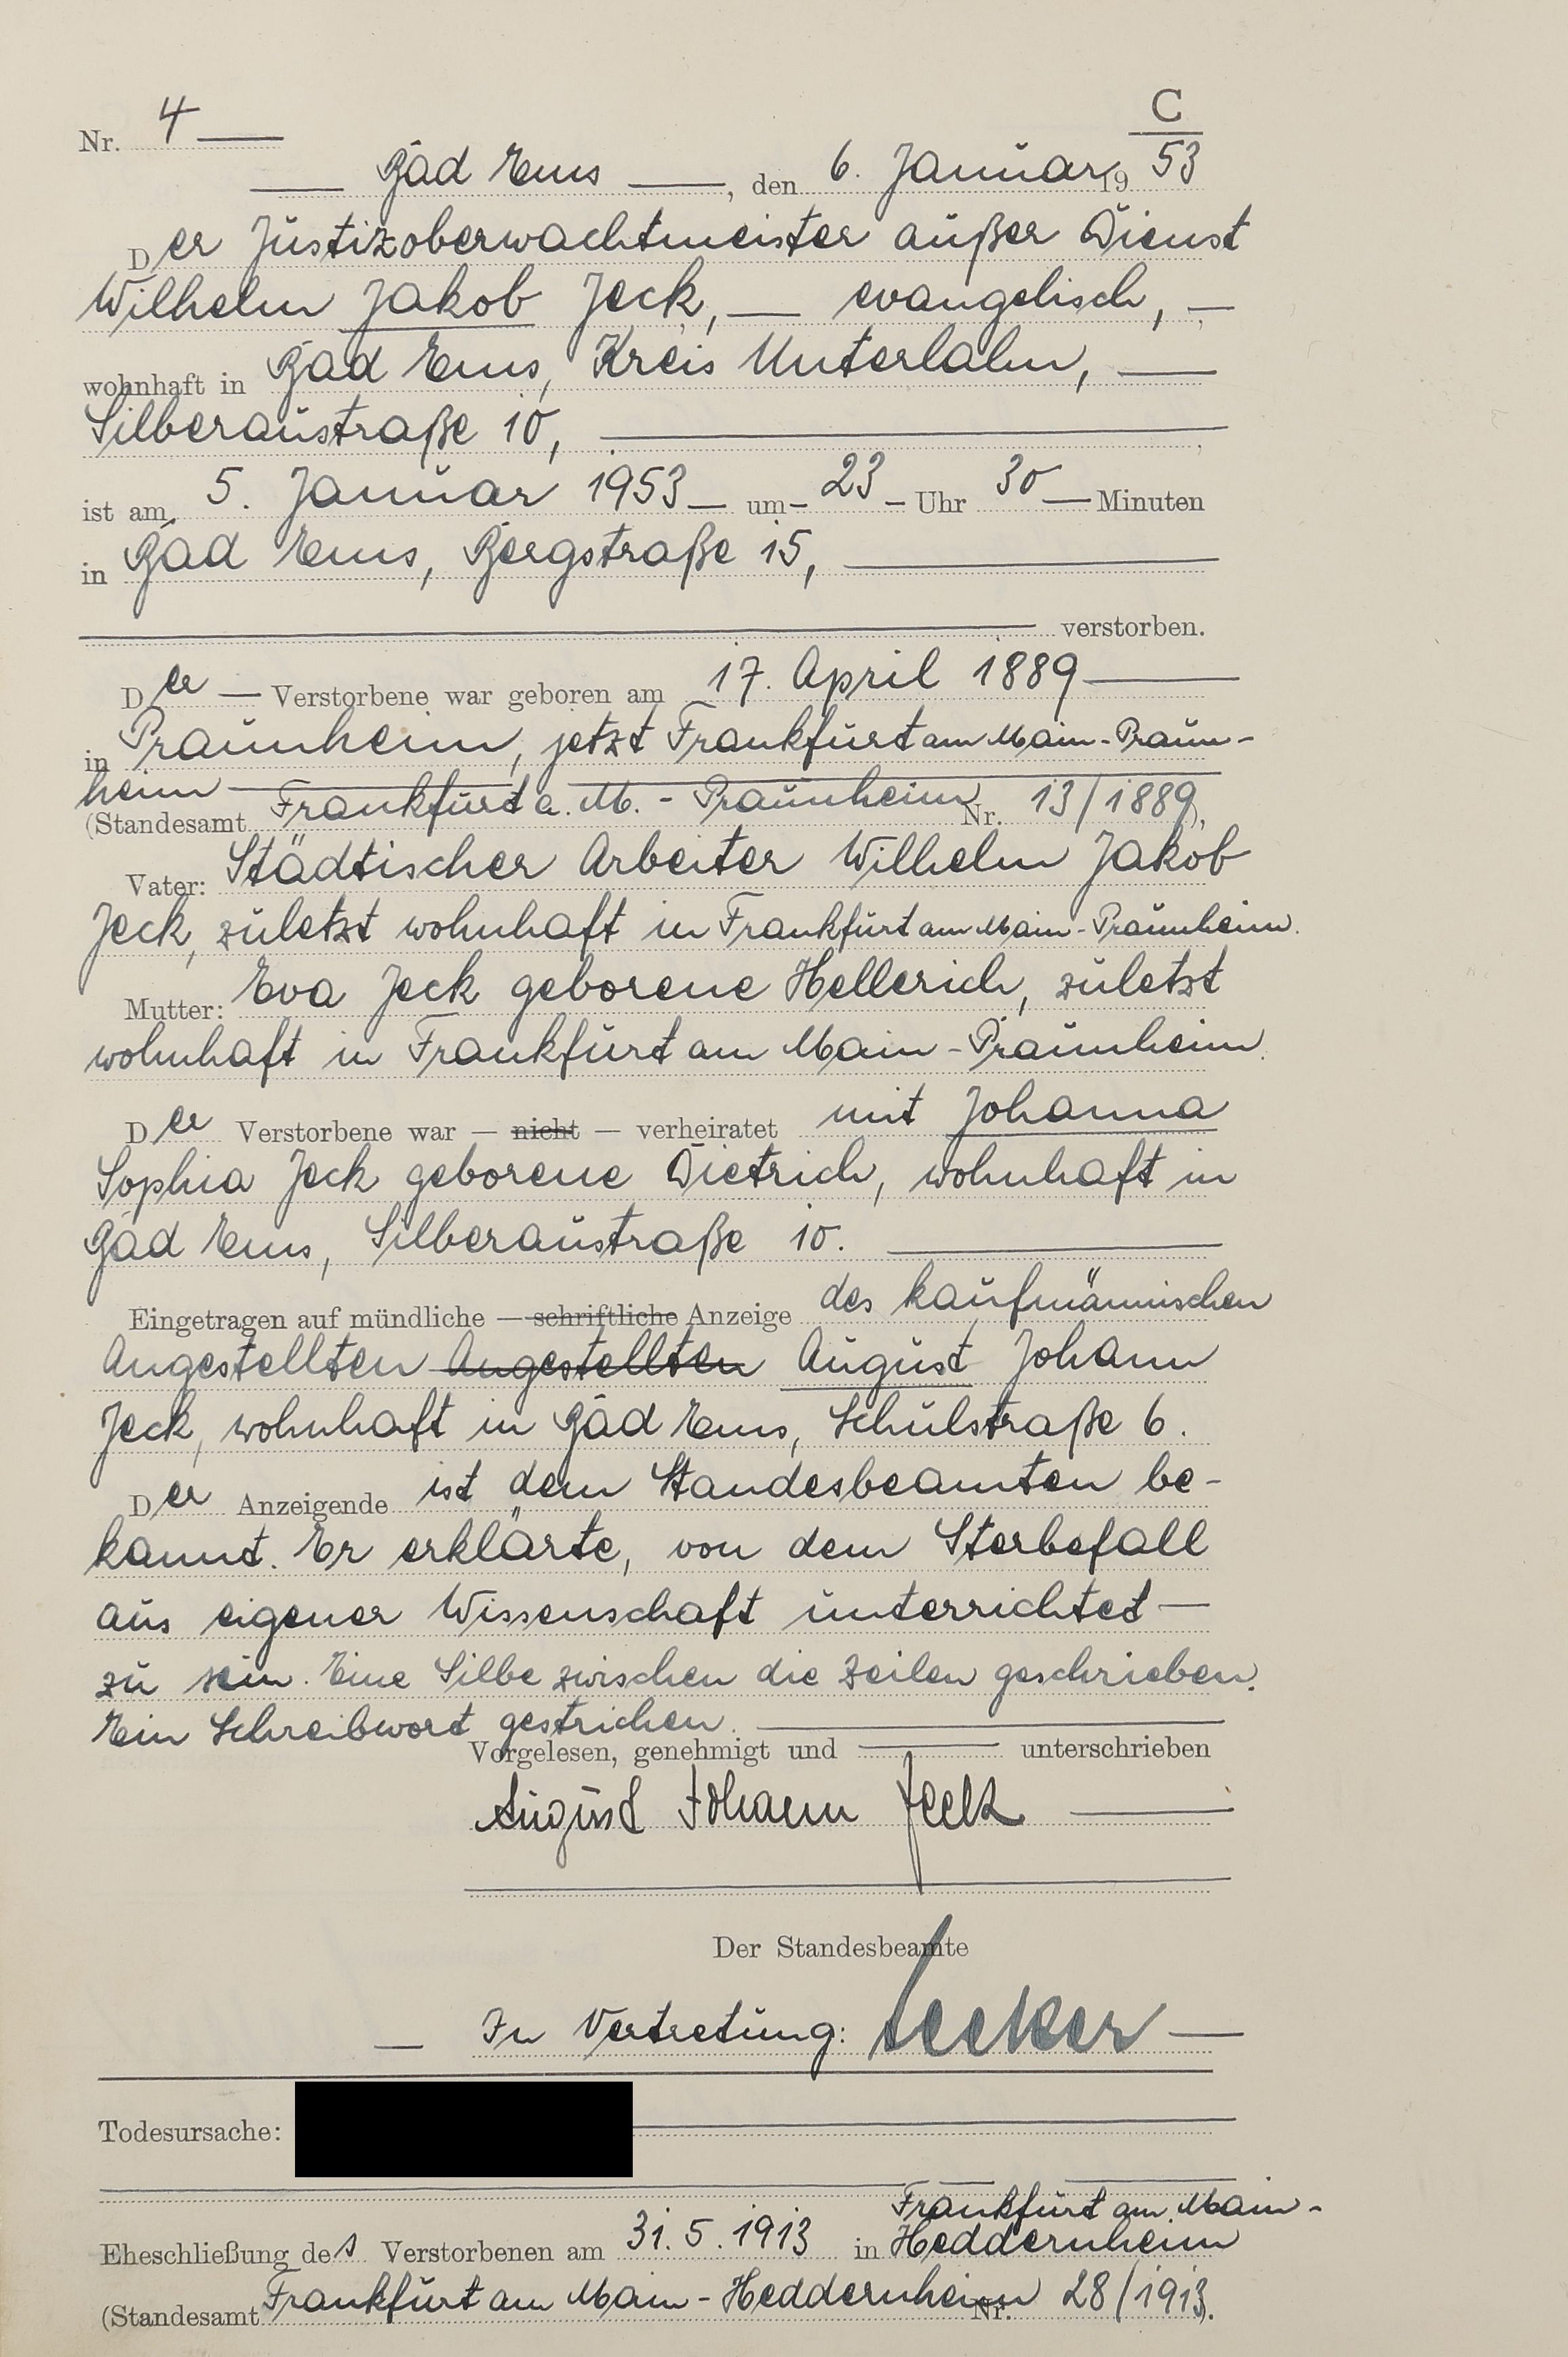 C
Nr. 4
Bad Ems, den 6. Januar 1953
Der Justizoberwachtmeister außer Dienst
Wilhelm Jakob Jeck, evangelisch,
wohnhaft in Bad Ems, Kreis Unterlahn,
Silberaustraße 10,
ist am 5. Januar 1953 um 23 Uhr 30 Minuten
in Bad Ems, Bergstraße 15,
verstorben.
Der Verstorbene war geboren am 17. April 1889
in Praunheim, jetzt Frankfurt am Main-Praun-
heim
(Standesamt Frankfurt a. M. - Praunheim Nr. 13/1889),
Vater: Städtischer Arbeiter Wilhelm Jakob
Jeck, zuletzt wohnhaft in Frankfurt am Main-Praunheim.
Mutter: Eva Jeck geborene Hellerich, zuletzt
wohnhaft in Frankfurt am Main-Praunheim.
Der Verstorbene war — nicht — verheiratet mit Johanna
Sophia Jeck geborene Dietrich, wohnhaft in
Bad Ems, Silberaustraße 10.
Eingetragen auf mündliche — schriftliche Anzeige des kaufmännischen
Angestellten Angestellten August Johann
Jeck, wohnhaft in Bad Ems, Schulstraße 6.
Der Anzeigende ist dem Standesbeamten be-
kannt. Er erklärte, von dem Sterbefall
aus eigener Wissenschaft unterrichtet
zu sein. Eine Silbe zwischen die Zeilen geschrieben.
Ein Schreibwort gestrichen.
Vorgelesen, genehmigt und unterschrieben
August Johann Jeck
Der Standesbeamte
In Vertretung: Becker
Todesursache:
Eheschließung des Verstorbenen am 31.5.1913 in Frankfurt am Main-
Heddernheim
(Standesamt Frankfurt am Main-Heddernheim Nr. 28/1913).